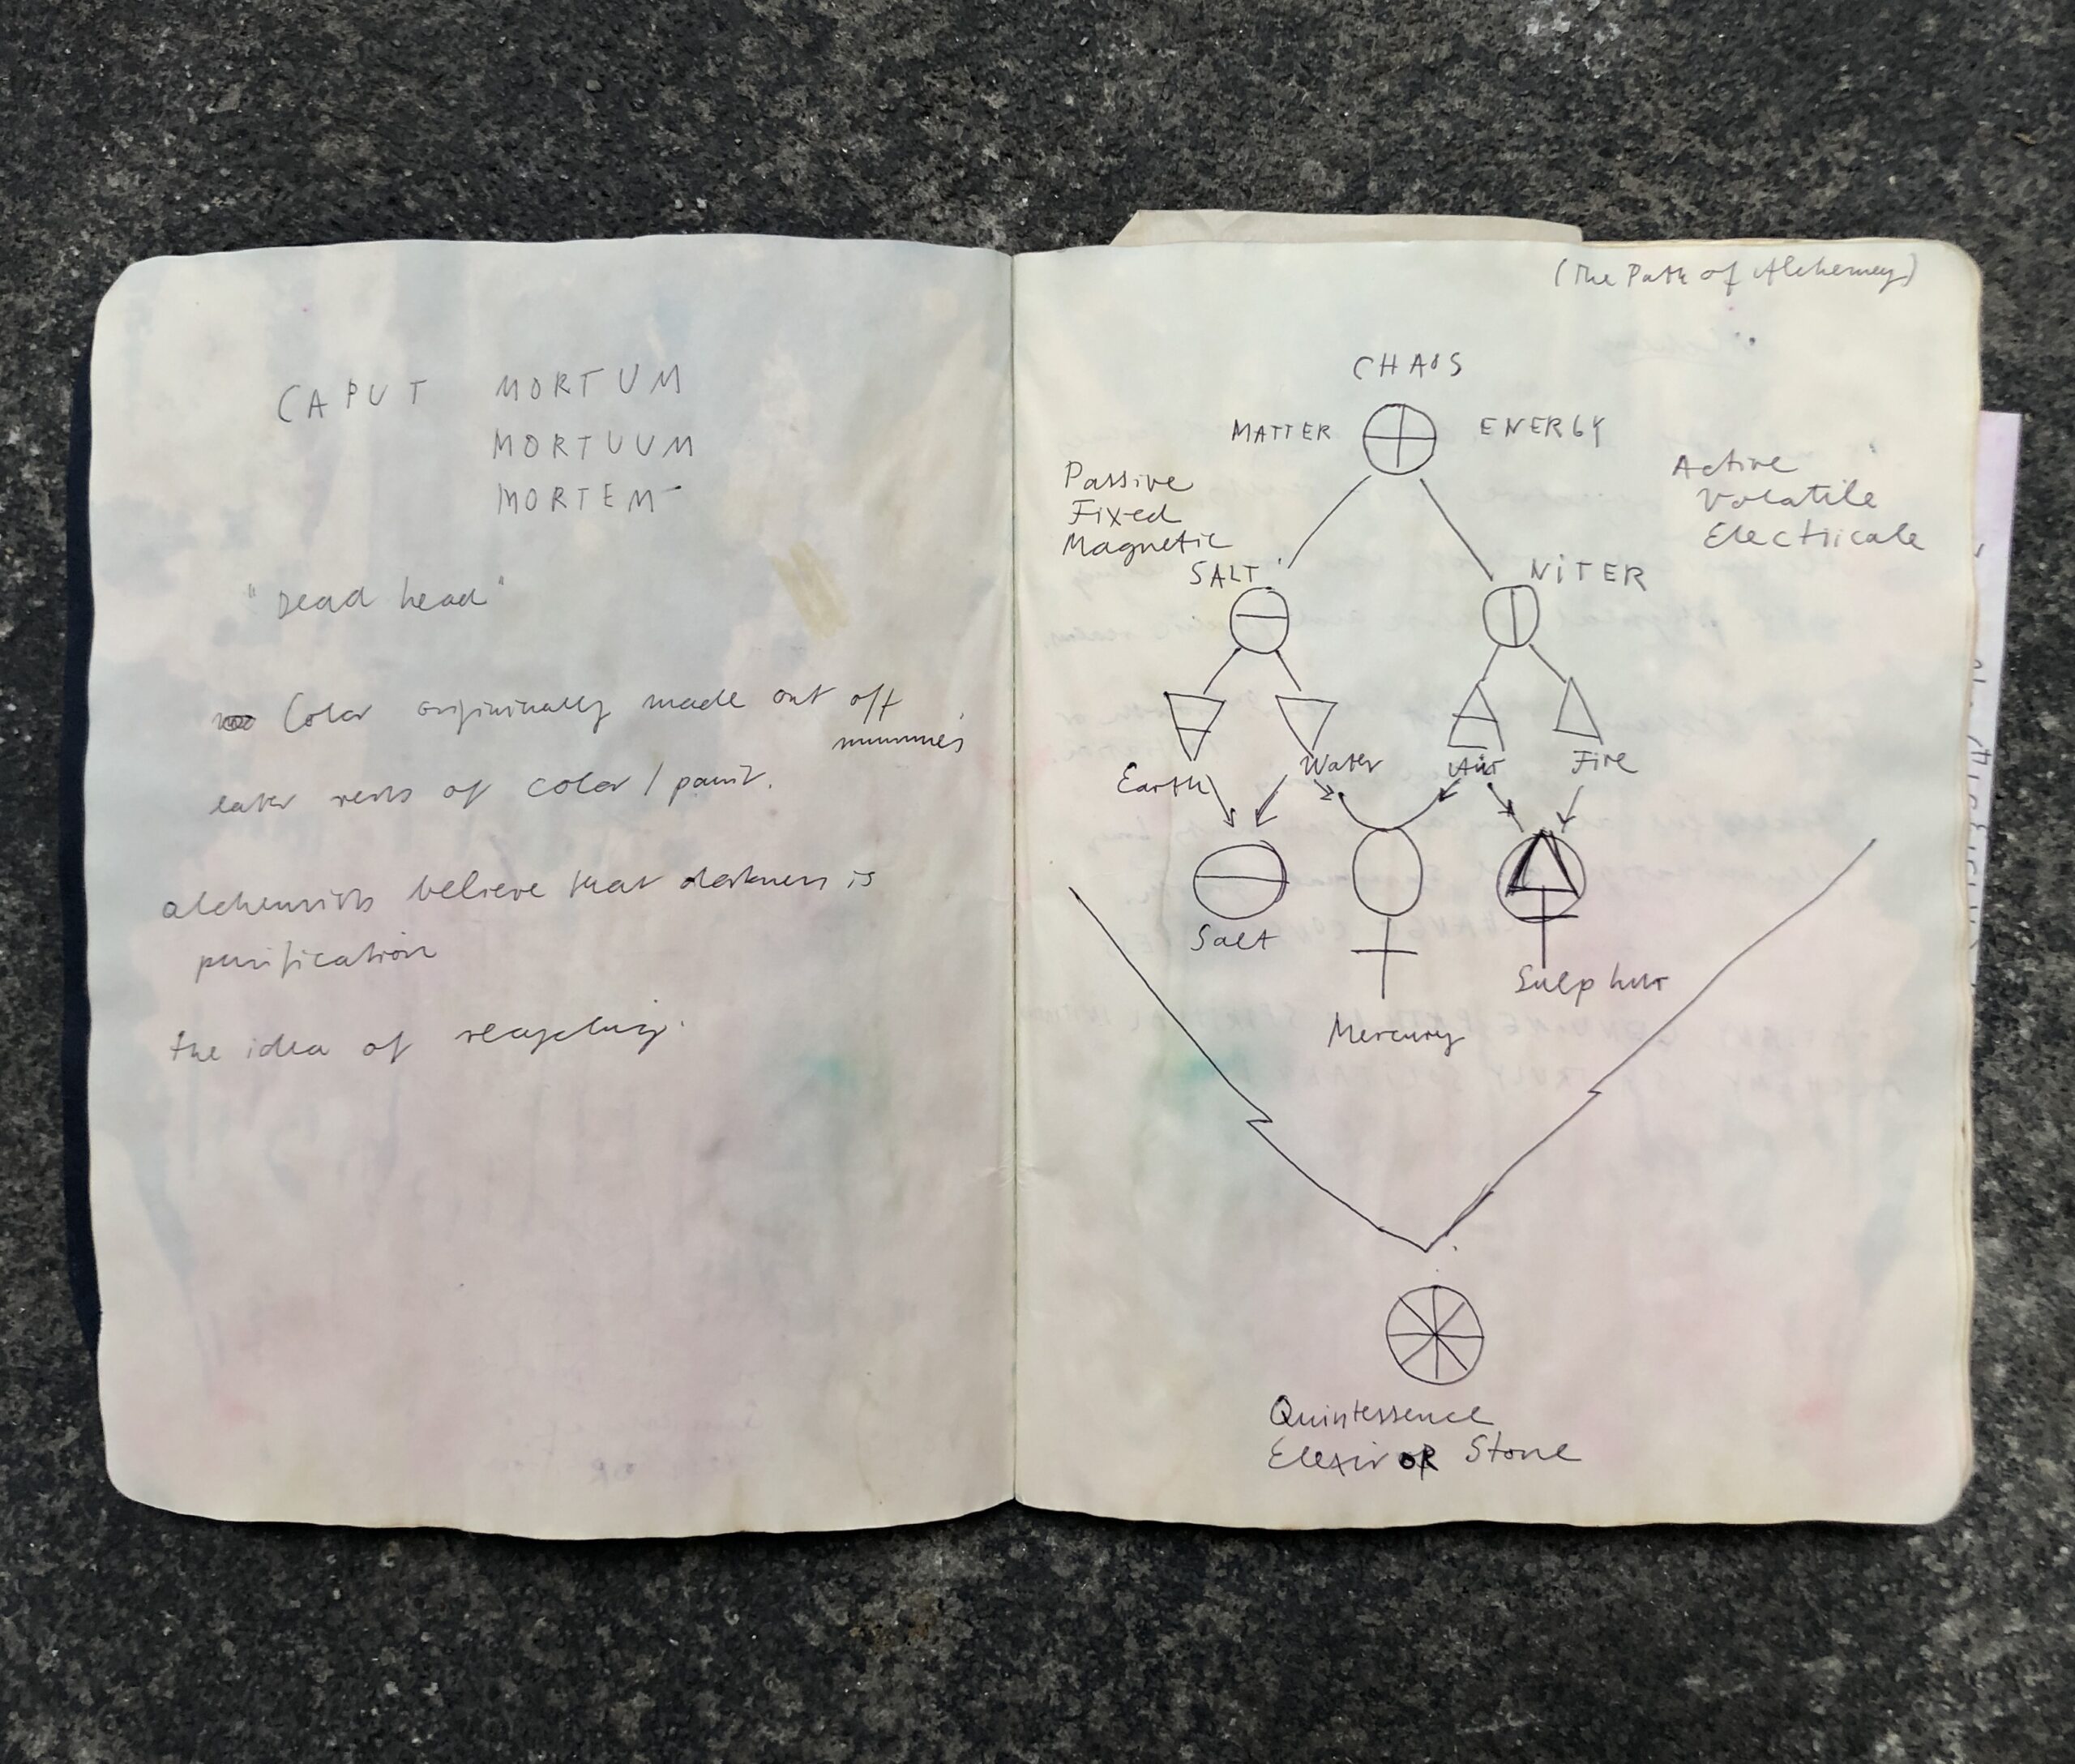 CAPUT MORTUM
MORTUUM
MORTEM
"Dead head"
Color origininally made out off
mummies
later rests of color / paint.
alchemists believe that darkness is
purification
the idea of recycling.
(The Path of Alchemey)
CHAOS
MATTER ENERGY
Passive
Fixed
Magnetic
Active
Volatile
Electricale
SALT NITER
Earth Water Air Fire
Salt
Mercury
Sulphur
Quintessence
Elexir OR Stone